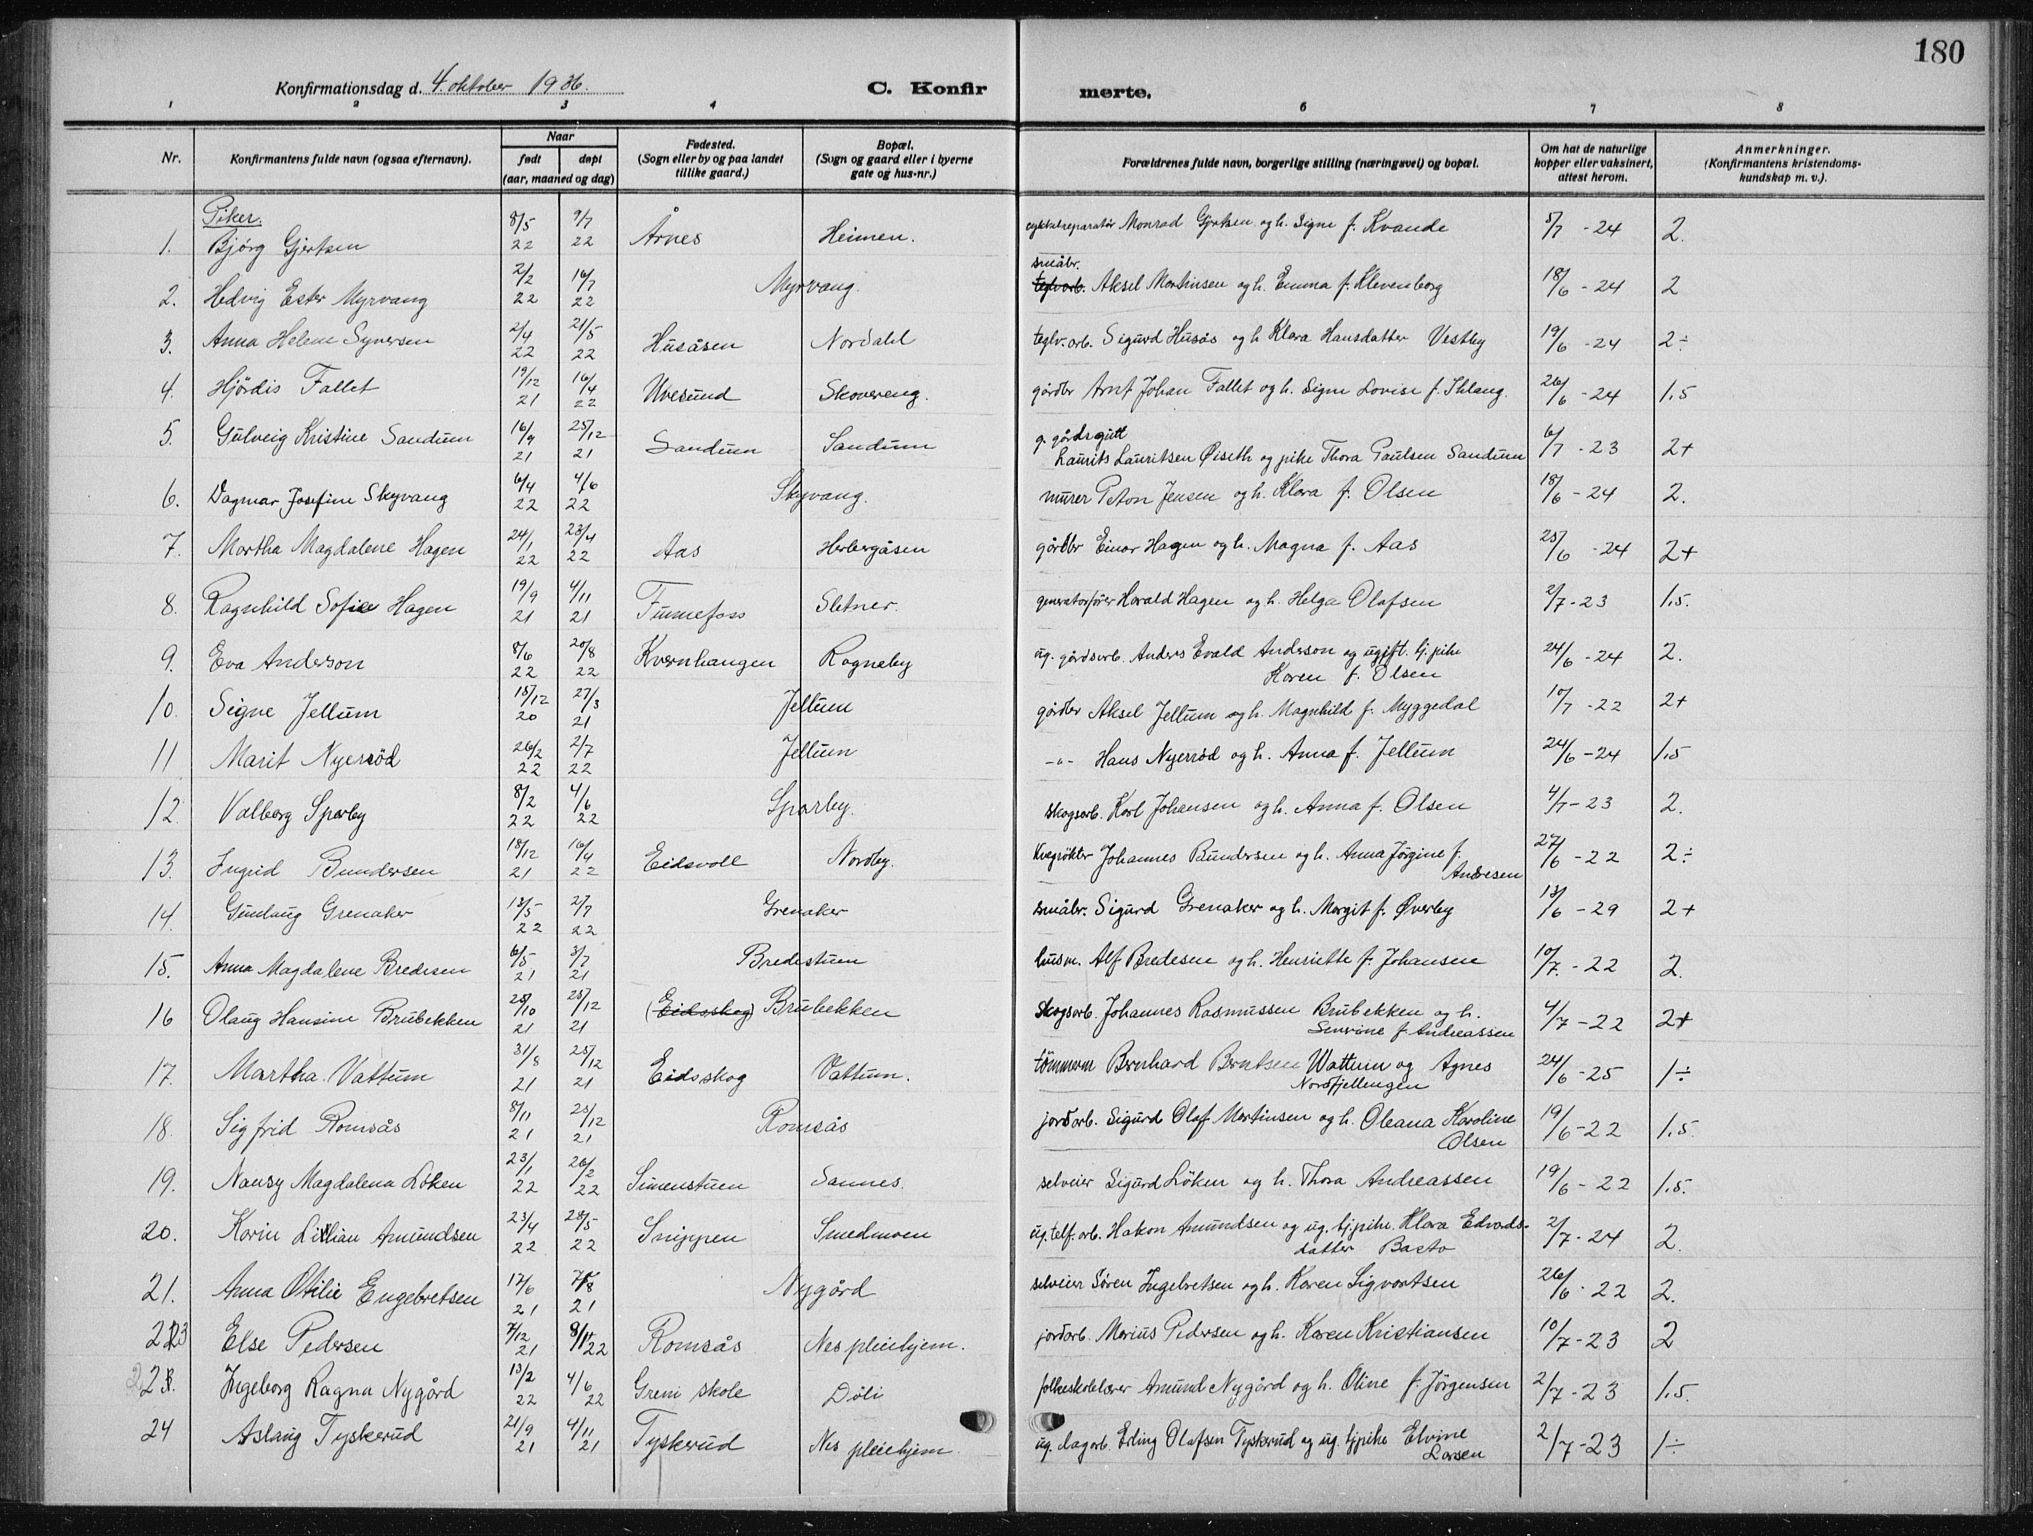 180
Konfirmationsdag d. 4. oktober 1936. C. Konfirmerte.
1 2 3 4 5 6 7 8
Nr. Konfirmantens fulde navn (ogsaa efternavn). Naar født døpt (aar, maaned og dag) Fødested. (Sogn eller by og paa landet tillike gaard.) Bopæl. (Sogn og gaard eller i byerne gate og hus-nr.) Forældrenes fulde navn, borgerlige stilling (næringsvei) og bopæl. Om hat de naturlige kopper eller vaksinert, attest herom. Anmerkninger. (Konfirmantens kristendomskundskap m. v.).
Piker.
1. Bjørg Gjertsen 8/5 22 9/7 22 Årnes Heimen. cykkelreparatör Monrad Gjertsen og h. Signe f. Kvande 8/7 - 24 2.
2. Hedvig Ester Myrvang 2/2 22 16/7 22 Myrvang. småbr. teglv.arb. Aksel Martinsen og h. Emma f. Klevenborg 18/6 - 24 2
3. Anna Helene Syversen 2/4 22 21/5 22 Husåsen Nordahl teglv.arb. Sigurd Husås og h Klara Hansdatter Vestby 19/6 - 24 2÷
4. Hjørdis Fallet 19/12 21 16/4 22 Uvesund Skovereng. gårdbr Arnt Johan Fallet og h. Signe Lovise f. Ihlang. 26/6 - 24 1,5
5. Gulveig Kristine Sandum 16/9 21 25/12 21 Sandum Sandum g. gårdsgutt Laurits Lauritsen Øiseth og pike Thora Paulsen Sandum 6/7 - 23 2+
6. Dagmar Josefine Skyvang 6/4 22 4/6 22 Skyvang. murer Peton Jensen og h. Klara f. Olsen 18/6 - 24 2.
7. Martha Magdalene Hagen 24/1 22 23/4 22 Aas Herbergåsen gårdbr Einar Hagen og h. Magna f. Aas 25/6 - 24 2+
8. Ragnhild Sofie Hagen 19/9 21 4/11 21 Funnefoss Sletner. generatorfører Harald Hagen og h. Helga Olafsen 2/7 - 23 1,5.
9. Eva Anderson 8/6 22 20/8 22 Kvernhaugen Rogneby ug. gårdsarb. Anders Evald Anderson og ugift tj. pike Karen f. Olsen 24/6 - 24 2.
10. Signe Jellum 15/12 20 27/3 21 Jellum gårdbr Aksel Jellum og h. Magnhild f. Myggedal 10/7 - 22 2+
11 Marit Nyerröd 26/2 22 2/7 22 Jellum -"- Hans Nyerröd og h. Anna f. Jellum 24/6 - 24 1,5
12. Valborg Sparby 8/2 22 4/6 22 Sparby. skogsarb. Karl Johansen og h. Anna f. Olsen 4/7 - 23 2.
13. Ingrid Bundersen 18/12 21 16/4 22 Eidsvoll Nordby. Kvegrökter Johannes Bundersen og h. Anna Jörgine f. Andresen 27/6 - 22 2÷
14. Gunlaug Grenaker 13/5 22 2/7 22 Grenaker småbr. Sigurd Grenaker og h. Margit f. Øverby 13/6 - 29 2+
15. Anna Magdalene Bredesen 6/5 21 3/7 21 Bredestuen husm. Alf Bredesen og h. Henriette f. Johansen 10/7. - 22 2.
16 Olaug Hansine Brubekken 25/10 21 25/12 21 (Eidsskog) Brubekken Skogsarb. Johannes Rasmussen Brubekken og h. Severine f. Andreassen 4/7 - 22 2+
17. Martha Vattum 31/8 21 25/12 21 Eidsskog Vattum. tömmerm Bernhard Berntsen Wattum og Agnes Nordfjellengen 24/6 - 25 1÷
18. Sigfrid Romsås 8/11 21 25/12 21 Romsås jordarb. Sigurd Olaf Martinsen og h. Oleana Karoline Olsen 19/6 - 22 1,5.
19. Nansy Magdalena Löken 23/1 22 26/2 22 Simenstuen Sannes. selveier Sigurd Löken og h. Thora Andreassen 19/6 - 22 1,5.
20. Karin Lillian Amundsen 23/4 22 28/5 22 Snippen Smedmoen ug. telf. arb. Hakon Amundsen og ug. tj.pike Klara Edvardsdatter Basto 2/7 - 24 2.
21. Anna Otilie Engebretsen 17/6 21 7/8 21 Nygård selveier Sören Ingebretsen og h. Karen Sigvartsen 26/6 - 22 2.
23 Else Pedersen 7/12 21 8/11 22 Romsås Nes pleiehjem. jordarb. Marius Pedersen og h. Karen Kristiansen 10/7 - 23 2
22. Ingeborg Ragna Nygård 13/2 22 4/6 22 Greni skole Döli folkeskolelærer Amund Nygård og h. Oline f. Jörgensen 2/7 - 23 1,5.
24 Aslaug Tyskerud 21/9 21 4/11 21 Tyskerud Nes pleiehjem. ug. dagarb. Erling Olafsen Tyskerud og ug. tjpike Elvine Larsen 2/7 - 23 1÷